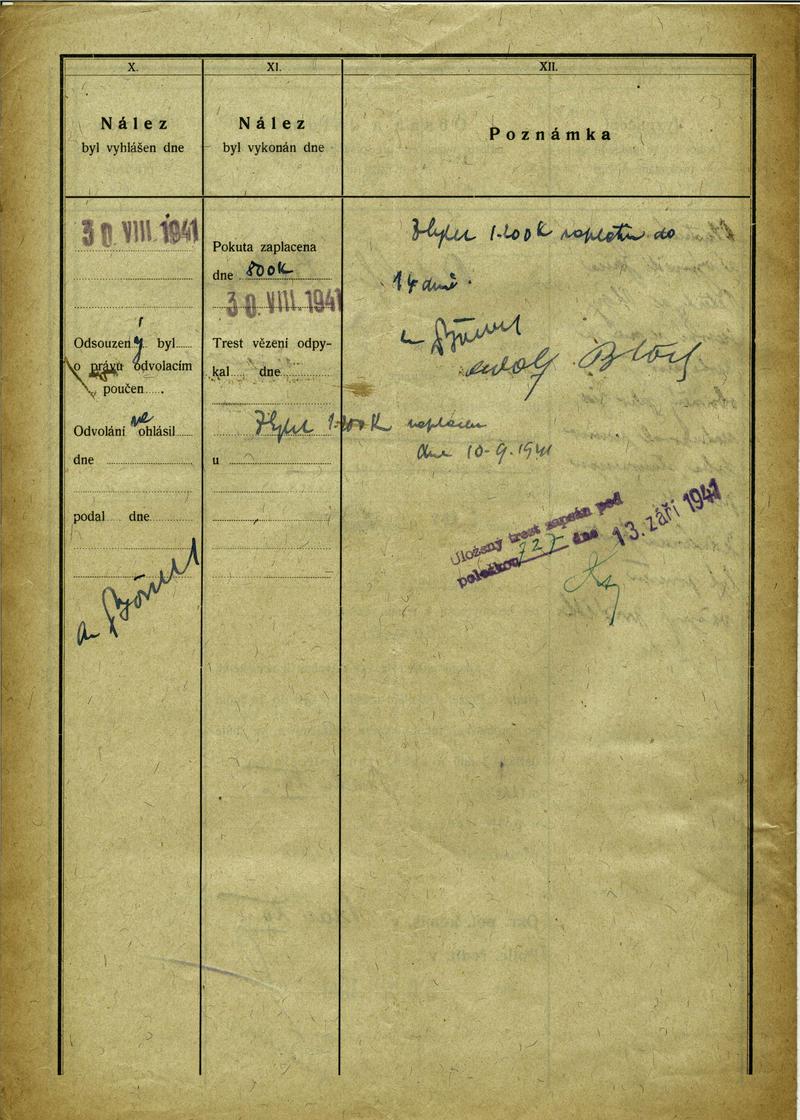 X.
Nález
byl vyhlášen dne
30. VIII. 1941
Odsouzený byl
o právu odvolacím
poučen
Odvolání neohlásil
dne
podal dne
XI.
Nález
byl vykonán dne
Pokuta zaplacena
dne 800K
30. VIII. 1941
Trest vězení odpy-
kal dne
u
XII.
Poznámka
Zbytek 1.200K zaplatím do
14 dnů.
Zbytek 1.200K zaplacen
dne 10-9.1941
Uložený trest zapsán pod
položkou 727 dne 13. září 1941